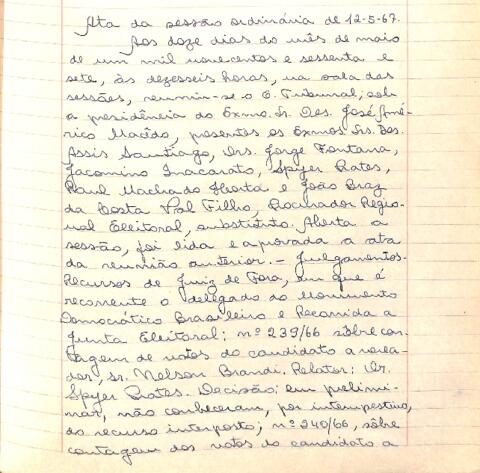 Ata da sessão ordinária de 12-5-67.
Aos doze dias do mês de maio
de um mil novecentos e sessenta e
sete, às dezesseis horas, na sala das
sessões, reuniu-se o E. Tribunal; sob
a presidência do Exmo. Sr. Des. José Amé-
rico Macêdo, presentes os Exmos. Srs. Des.
Assis Santiago, Drs. Jorge Fontana,
Jacomino Inacarato, Spyer Prates,
Raul Machado Horta e João Braz
da Costa Val Filho, Procurador Regio-
nal Eleitoral, substituto. Aberta a
sessão, foi lida e aprovada a ata
da reunião anterior. - Julgamentos.
Recursos de Juiz de Fora, em que é
recorrente o delegado do Movimento
Democrático Brasileiro e Recorrida a
Junta Eleitoral: nº 239/66 sôbre con-
tagem de votos do candidato a verea-
dor, sr. Nelson Brandi. Relator: Dr.
Spyer Prates. Decisão: em prelimi-
nar, não conheceram, por intempestivo,
do recurso interposto; nº 240/66, sôbre
contagem dos votos do candidato a